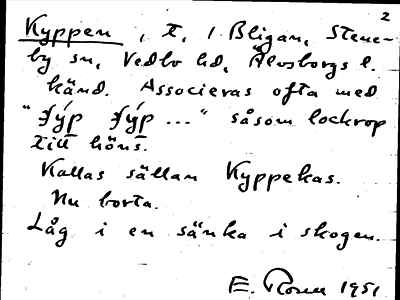 2
Kyppen, t. i Bligan, Stene-
by sn, Vedbo hd, Älvsborgs l.
känd. Associeras ofta med
"Týp Týp ..." såsom lockrop
till höns.
Kallas sällan Kyppekas.
Nu borta.
Låg i en sänka i skogen.
E. 1951